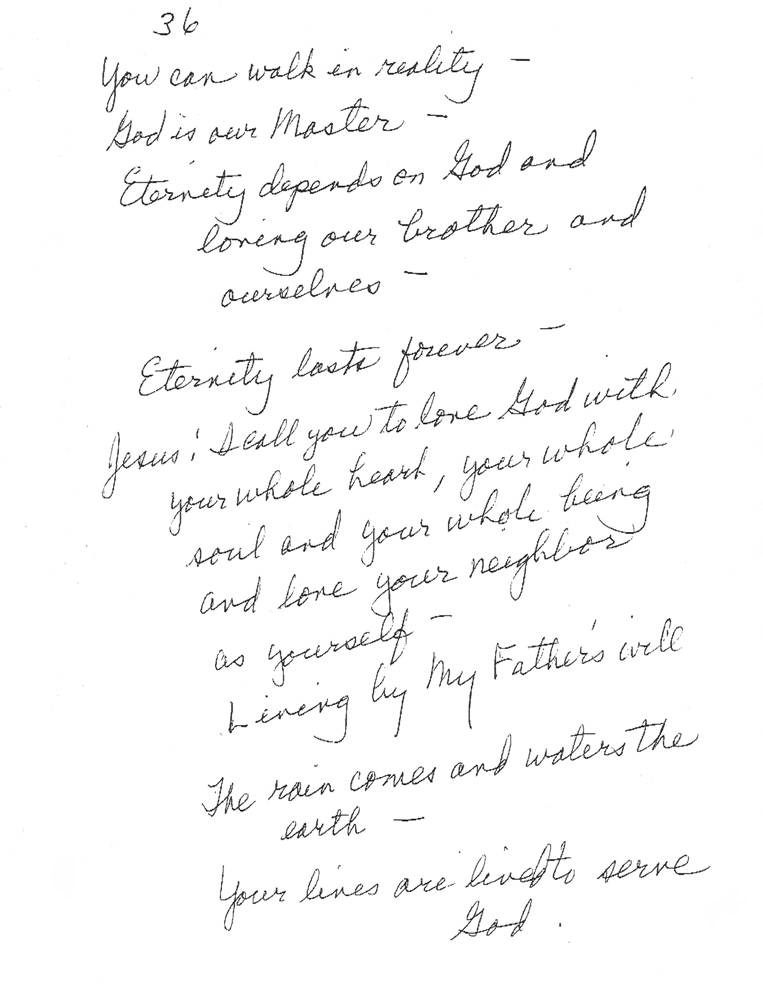 36
You can walk in reality —
God is our Master —
Eternity depends on God and
loving our brother and
ourselves —
Eternity lasts forever —
Jesus: I call you to love God with
your whole heart, your whole
soul and your whole being
and love your neighbor
as yourself —
Living by My Father's will
The rain comes and waters the
earth —
Your lives are lived to serve
God.